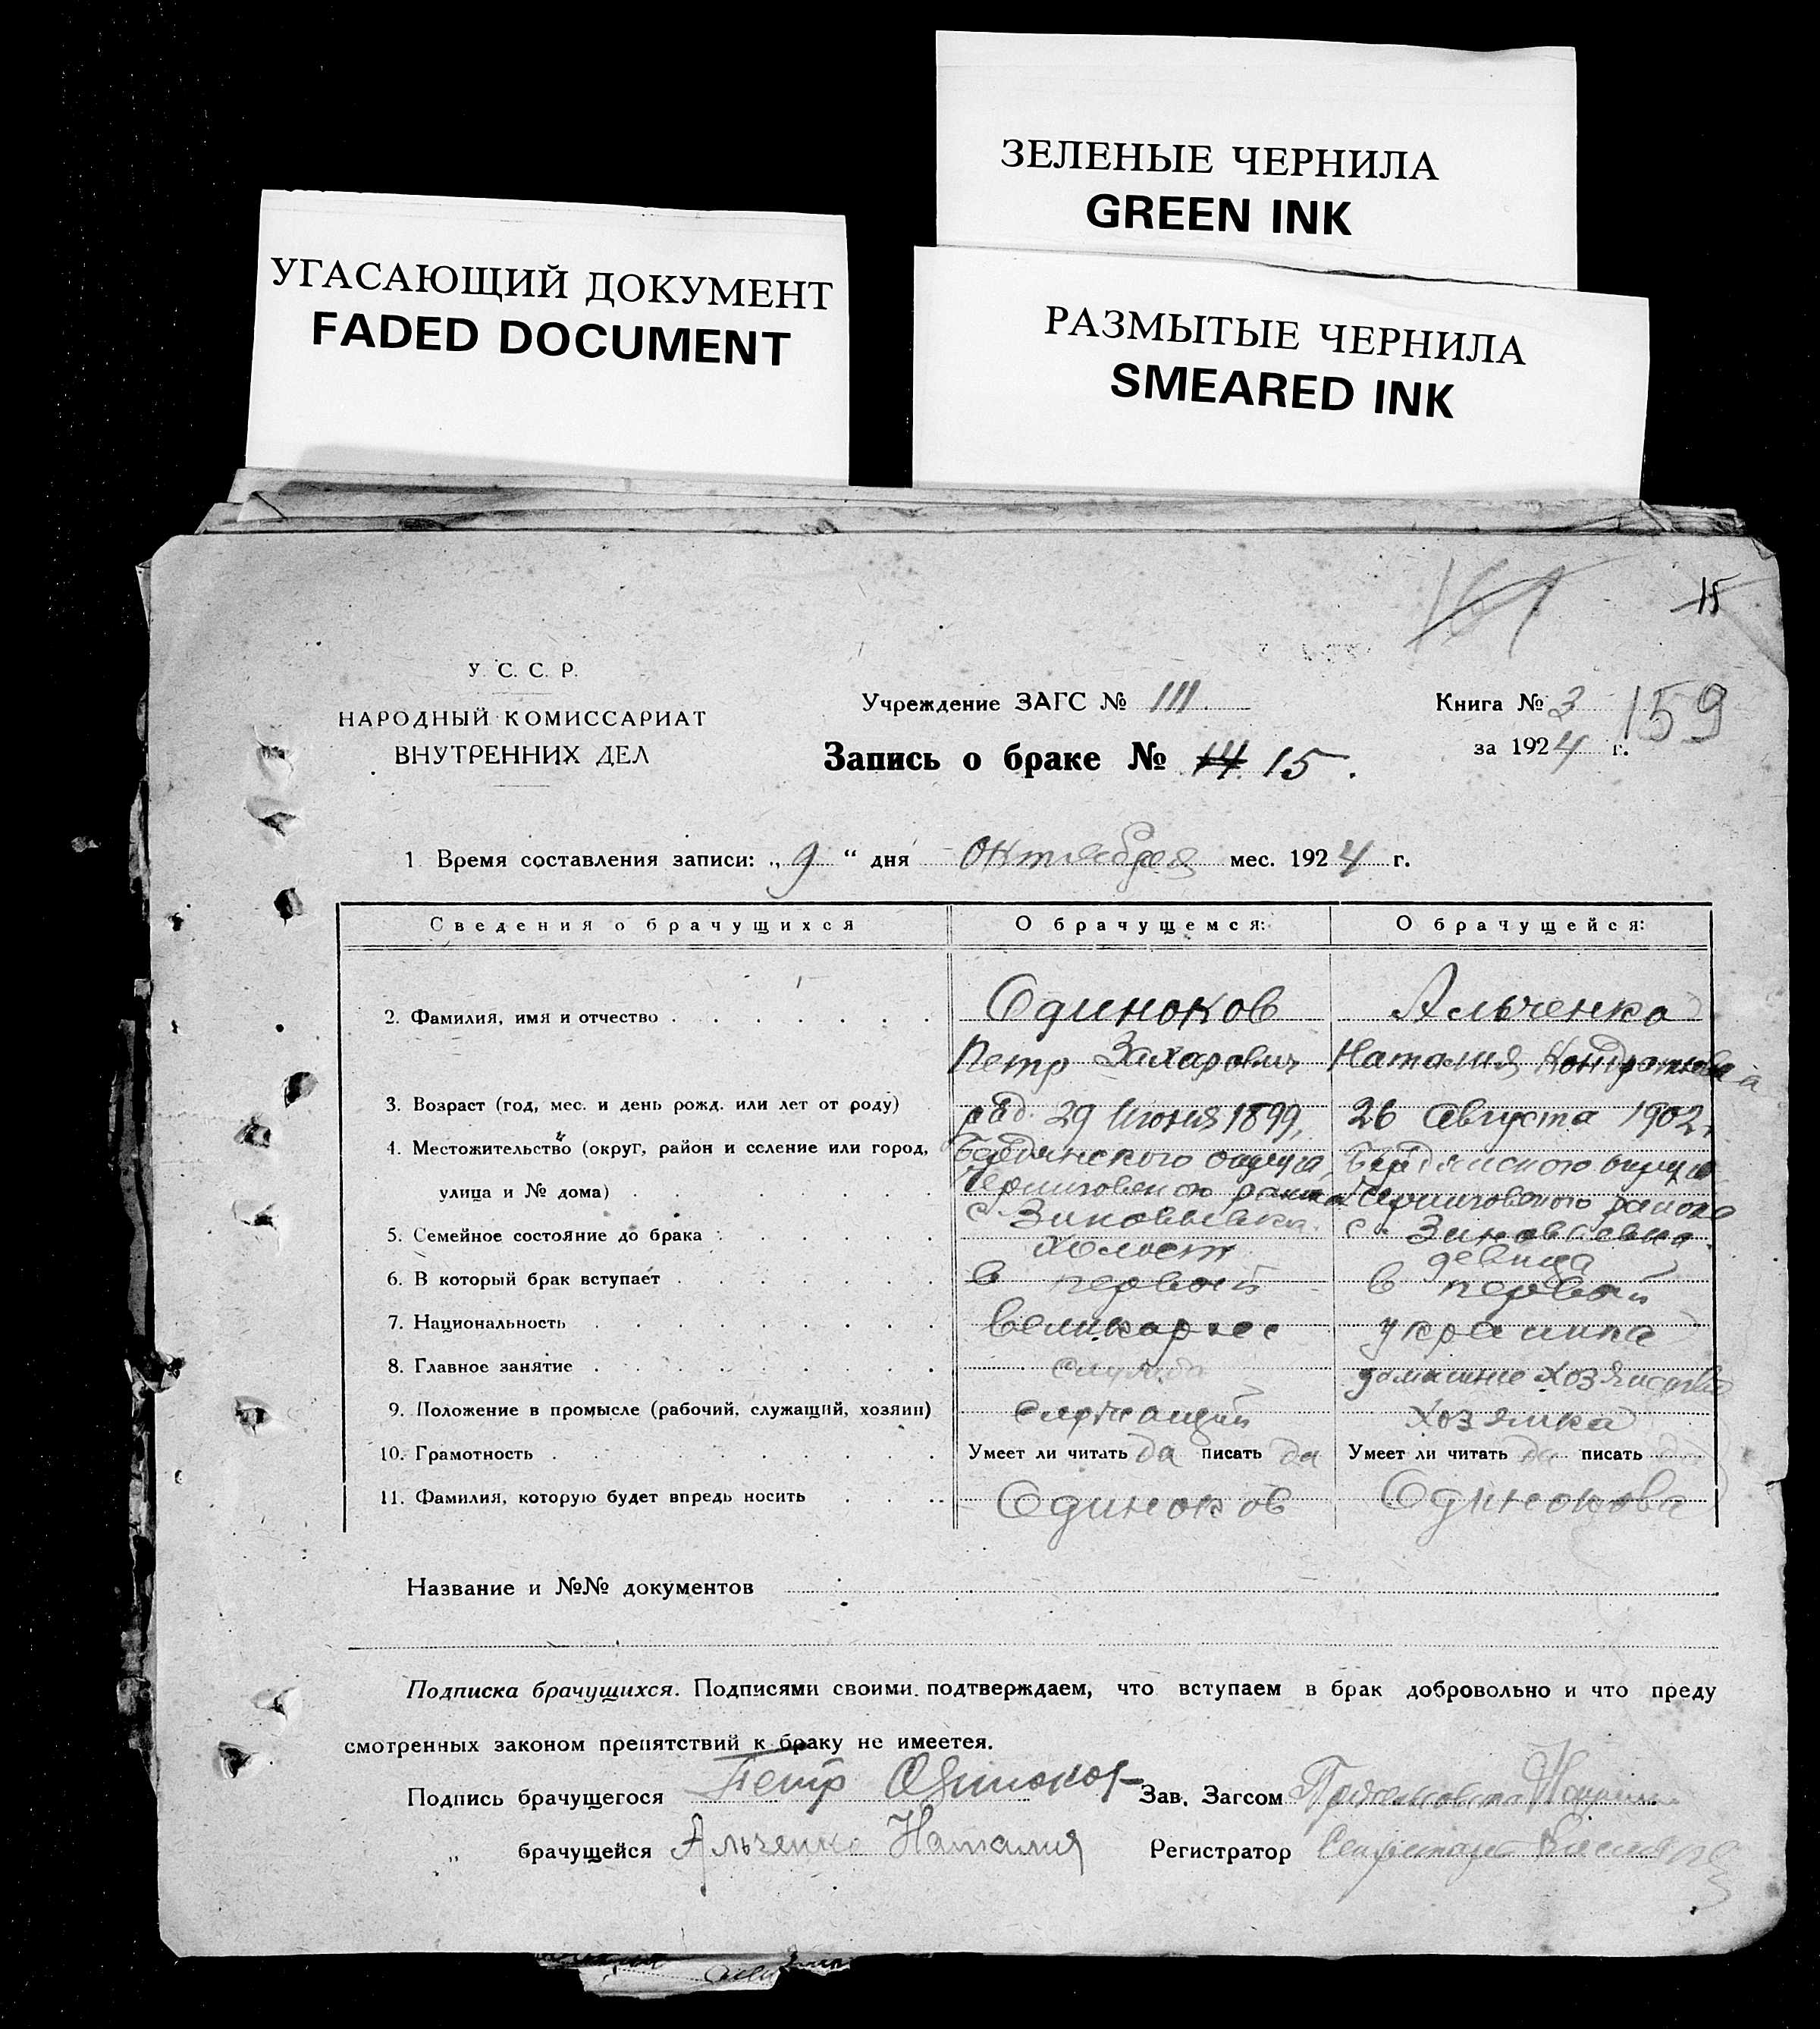 ЗЕЛЕНЫЕ ЧЕРНИЛА
GREEN INK
УГАСАЮЩИЙ ДОКУМЕНТ
FADED DOCUMENT
РАЗМЫТЫЕ ЧЕРНИЛА
SMEARED INK
161 15
У. С. С. Р.
НАРОДНЫЙ КОМИССАРИАТ
ВНУТРЕННИХ ДЕЛ
Учреждение ЗАГС № 111
Книга № 3 159
Запись о браке № 14 15.
за 1924 г.
1 Время составления записи: „ 9 “ дня октября мес. 1924 г.
Сведения о брачущихся О брачущемся: О брачущейся:
2. Фамилия, имя и отчество Одиноков Альченко
Петр Захарович Наталия Кондратьевна
3. Возраст (год, мес. и день рожд. или лет от роду) 29 Июня 1899, 26 августа 1902,
4. Местожительство (округ, район и селение или город, Бердянского округа Бердянского округа
улица и № дома) Черниговского района Черниговского района
с. Зиновьевка с. Зиновьевка
5. Семейное состояние до брака холост девица
6. В который брак вступает в первый в первый
7. Национальность великорос украинка
8. Главное занятие служба домашнее хозяйство
9. Положение в промысле (рабочий, служащий, хозяин) служащий хозяйка
10. Грамотность Умеет ли читать да писать да Умеет ли читать да писать да
11. Фамилия, которую будет впредь носить Одиноков Одинокова
Название и №№ документов
Подписка брачущихся. Подписями своими подтверждаем, что вступаем в брак добровольно и что преду
смотренных законом препятствий к браку не имеетея.
Подпись брачущегося Петр Одиноков Зав. Загсом
„ брачущейся Альченко Наталия Регистратор Секретарь